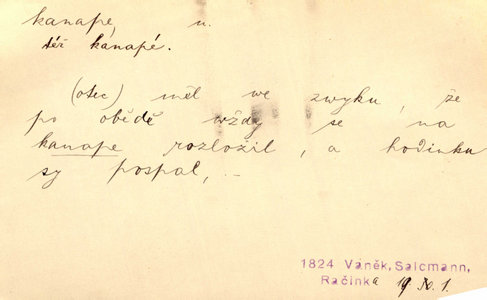 kanape, n.
též kanapé.
(otec) měl we zwyku, že
po obědě wždy se na
kanape rozložil, a hodinku
sy pospal, ..
1824 Vaněk, Salcmann,
Račinka IV. 1.